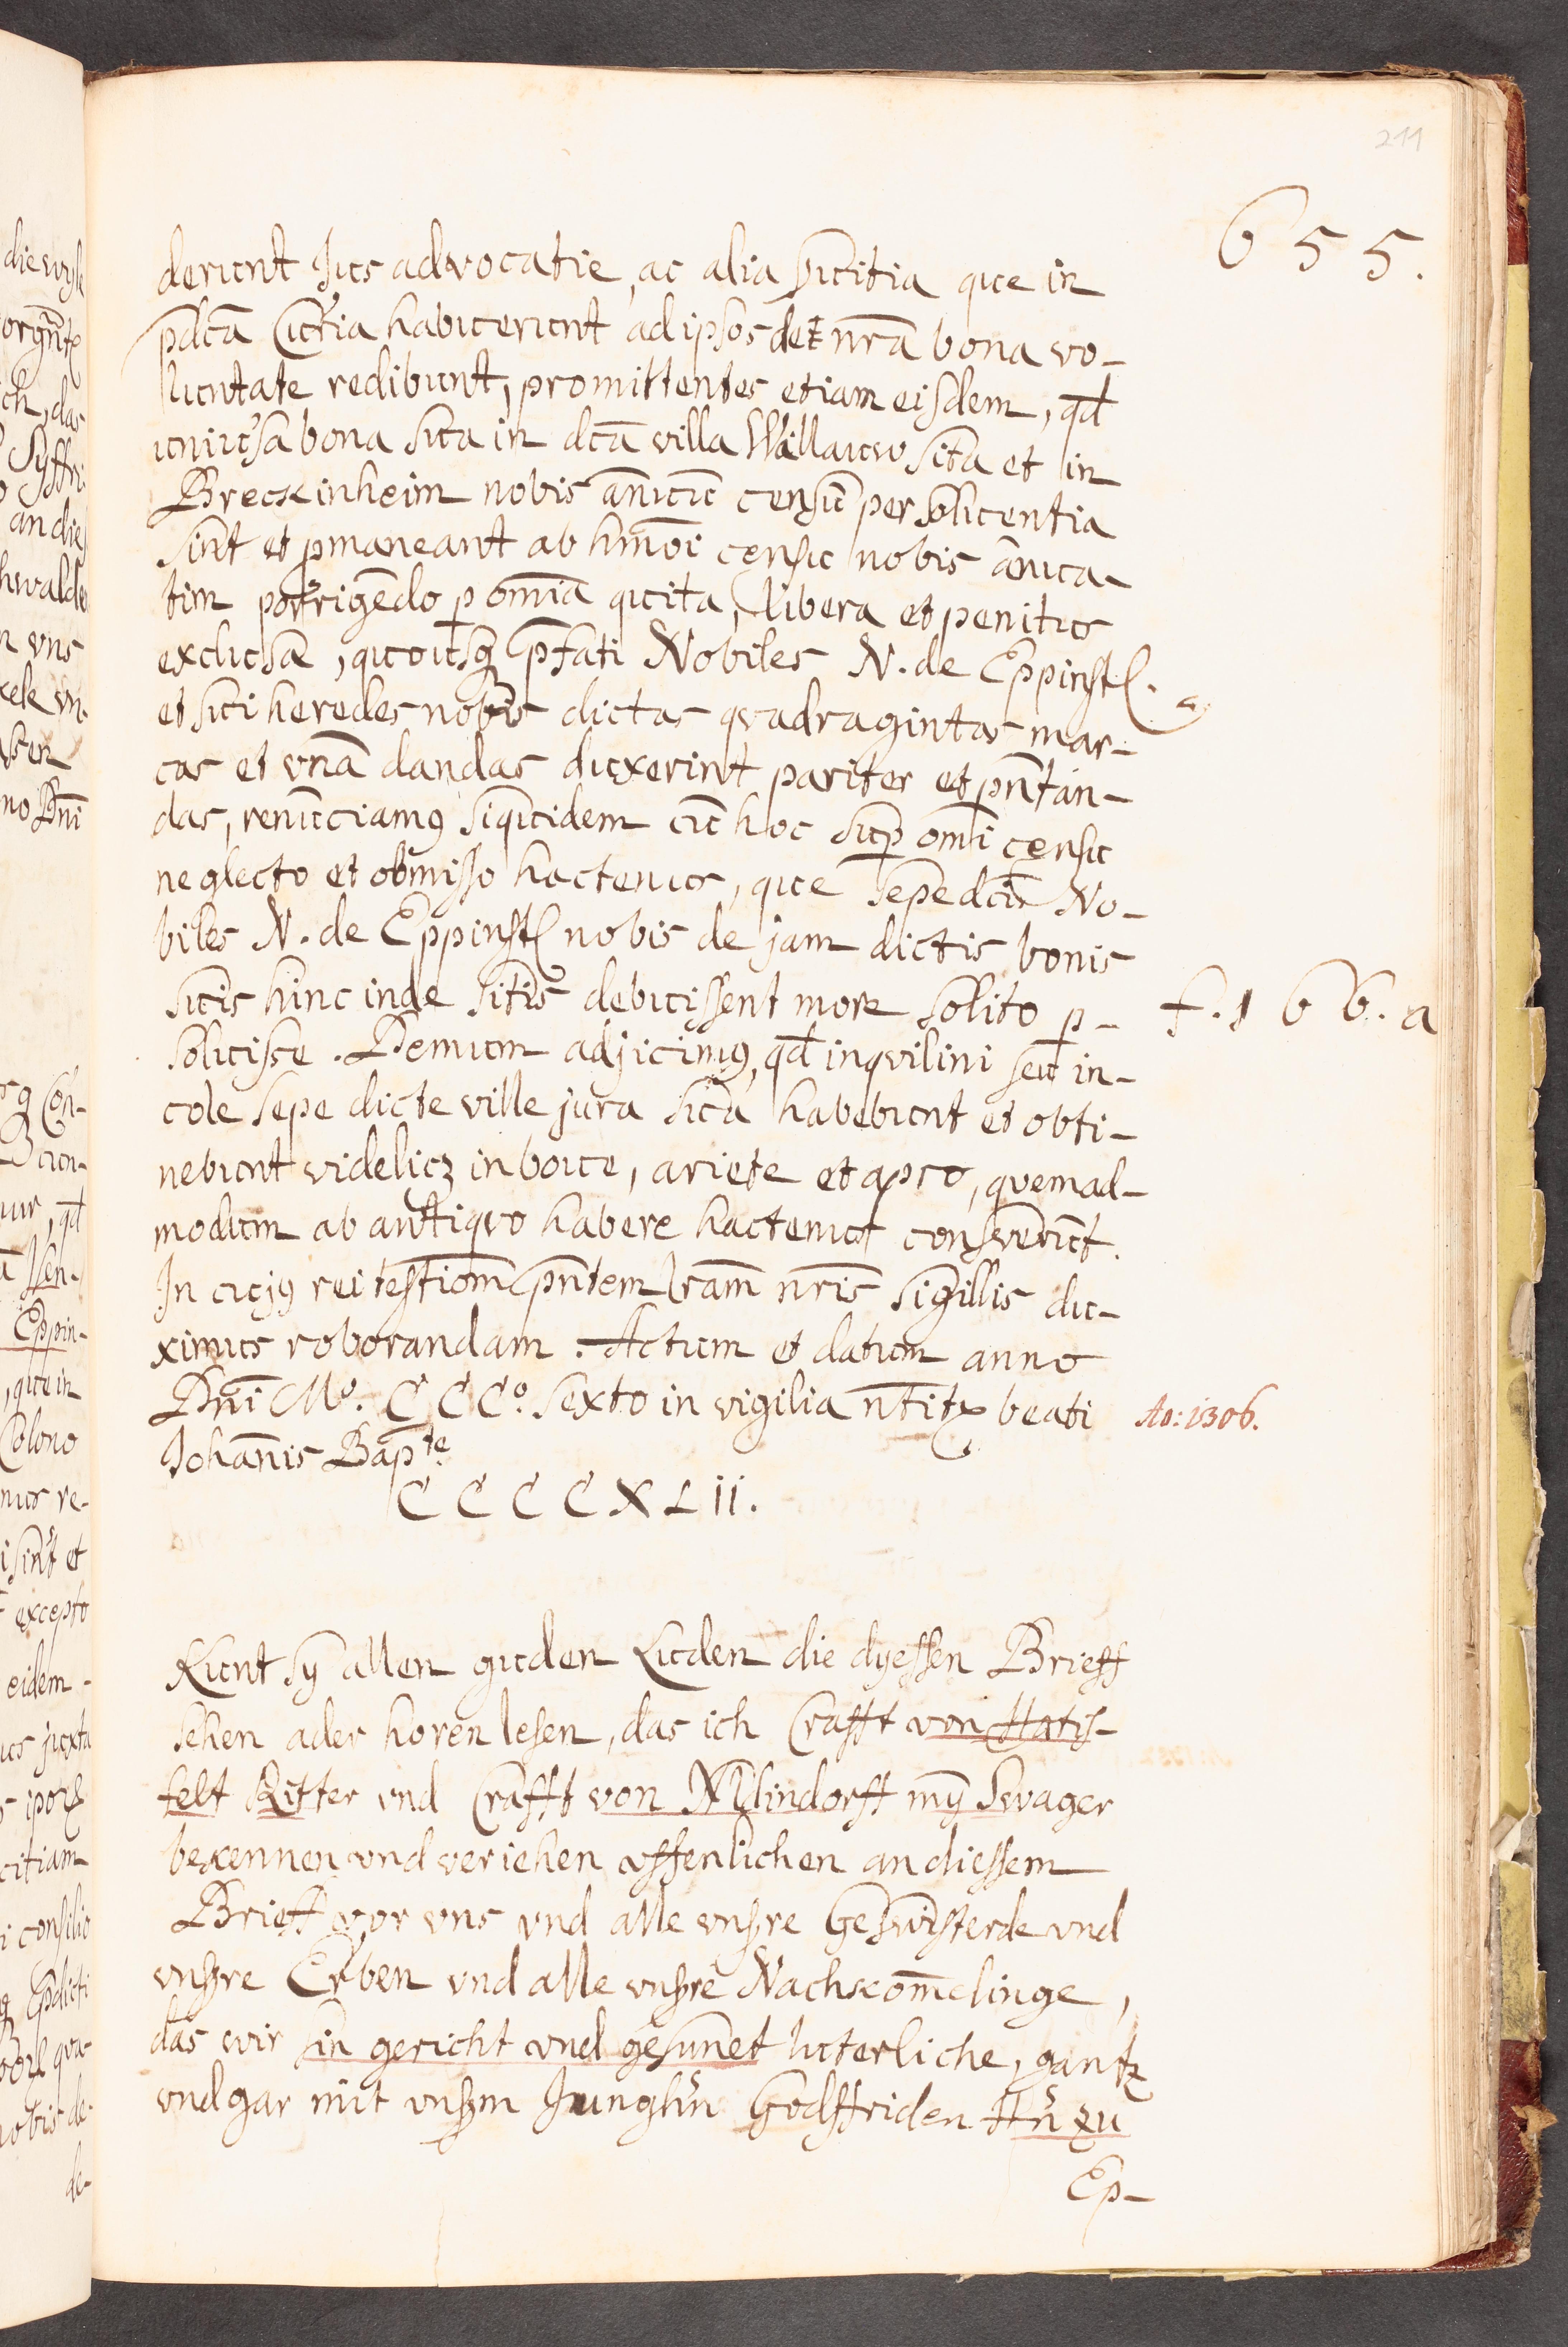 211
655.
derunt Jus advocatie, ac alia Juctitia que in
pdcā Curia habuerunt ad ipsos det nrā bona vo-
luntate redibunt, promittentes etiam eisdem, qd
univ'sa bona sua in dcā villa Wallauw sita et in
Breckinheim nobis annuū censū persoluentia
sint et pmaneant ab hmōi censu nobis annua-
tim porrigēdo p omnīa quita, libera et penitus
exclusa, quousq p̄fati Nobiles N. de Eppinst.
et sui heredes nobis dictas qvadragintas mar-
cas et vnā dandas duxerint pariter et pn̄tan-
das, renūciamꝰ siquidem cū hoc sup omī censu
neglecto et obmisso hactenus, que sepedcī No-
biles N. de Eppinst nobis de jam dictis bonis
suis hinc inde sitis debuissent more solito p-
f. 166. a
soluisse. Demum adjicimꝰ, qd inqvilini seu in-
cole sepe dicte ville jura sua habebunt et obti-
nebunt videlicz in boue, ariete et apro, qvemad-
modum ab antiqvo habere hactenus consverūt.
In cujꝰ rei testiom p̄ntem lram nris̄ sigillis du-
ximus roborandam. Actum et datum anno
Dnī Mo. CCCo. sexto in vigilia n̄tit beati
Ao: 1306.
Johan̄is Bapte
CCCCXLII.
Kunt sy allen guden Luden die dyessen Brieff
sehen ader horen lesen, das ich Crafft von Hatis-
felt Ritter vnd Crafft von Ulindorff mỹ Swager
bekennen vnd veriehen offenlichen an diessem
Brieff vor vns vnd alle vnßre Geswisterde vnd
vnßre Erben vnd alle vnßre Nachkom̄elinge,
das wir sin gericht vnd gesunet luterliche, gantz
vnd gar mit vnßm Junghn̄ Godffriden Hn̄ zu
Ep-